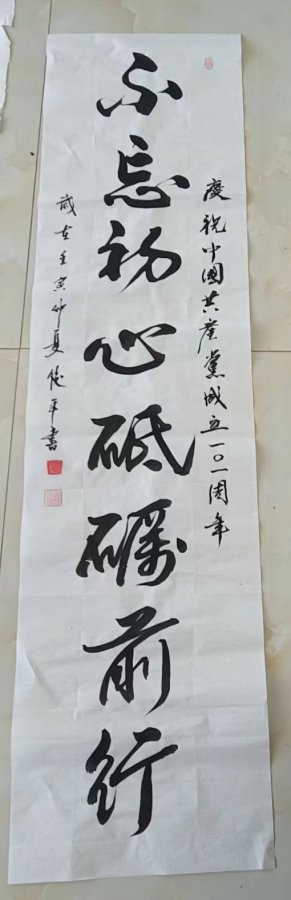 慶祝中國共產黨成立一〇一周年
不忘初心砥礪前行
歲在壬寅仲夏俊平書